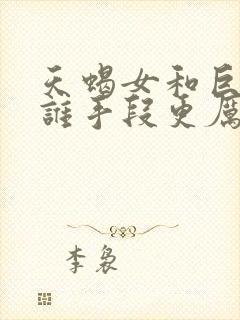 天蝎女和巨
誰手段更厲
李袅